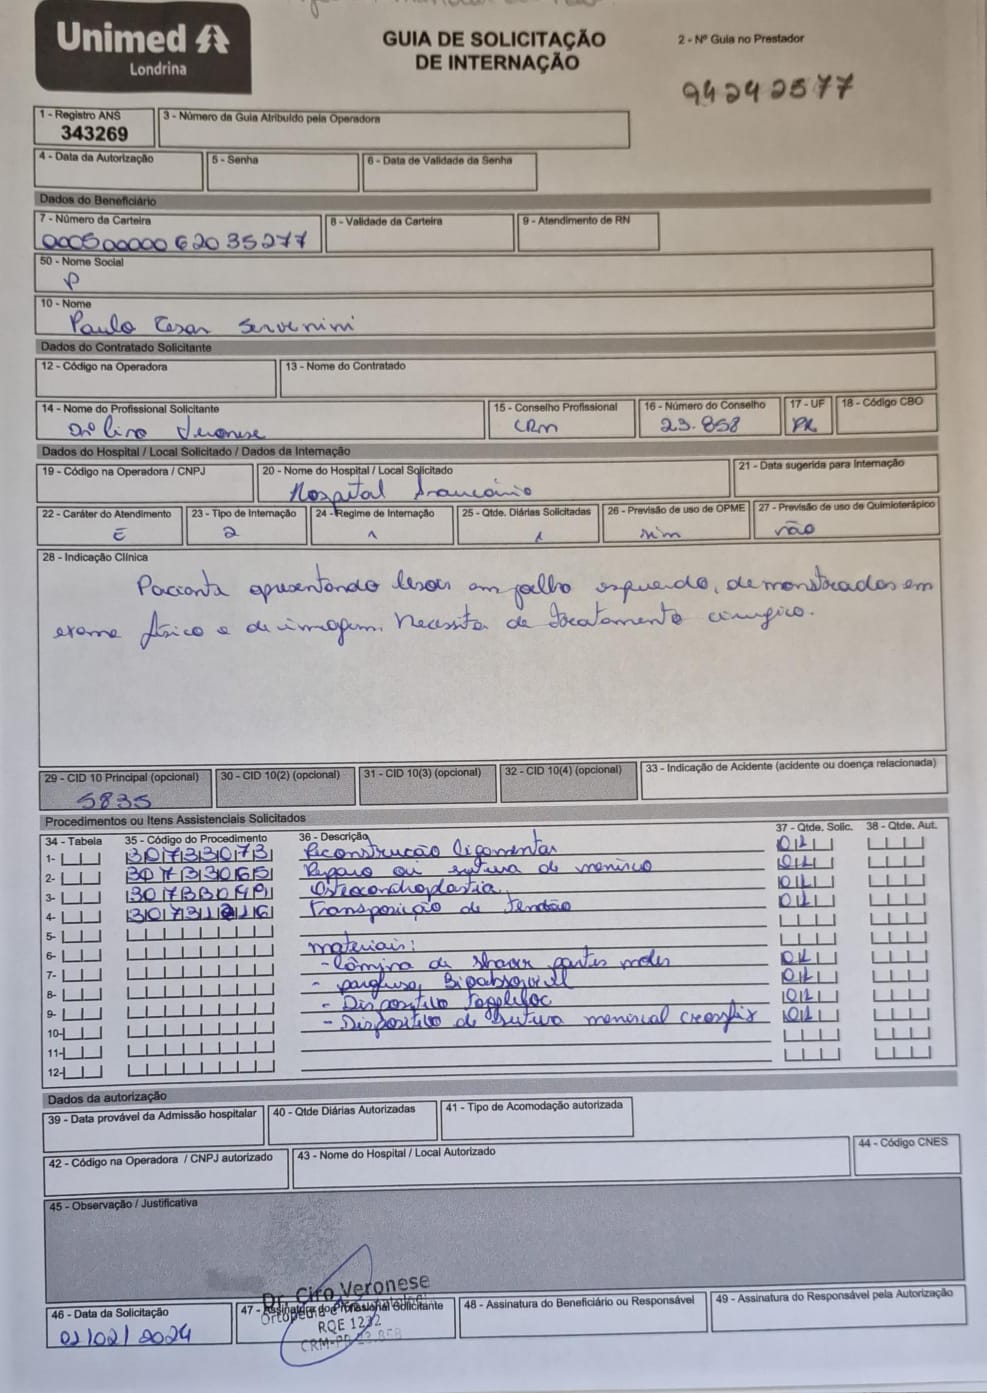 Unimed
Londrina
GUIA DE SOLICITAÇÃO
DE INTERNAÇÃO
2 - Nº Guia no Prestador
94242577
1 - Registro ANS
343269
3 - Número da Guia Atribuído pela Operadora
4 - Data da Autorização
5 - Senha
6 - Data de Validade da Senha
Dados do Beneficiário
7 - Número da Carteira
8 - Validade da Carteira
9 - Atendimento de RN
00050000062035277
50 - Nome Social
P
10 - Nome
Paulo Cesar Servenini
Dados do Contratado Solicitante
12 - Código na Operadora
13 - Nome do Contratado
14 - Nome do Profissional Solicitante
15 - Conselho Profissional
16 - Número do Conselho
17 - UF
18 - Código CBO
Dr Ciro Veronese
CRM
23.858
PR
Dados do Hospital / Local Solicitado / Dados da Internação
19 - Código na Operadora / CNPJ
20 - Nome do Hospital / Local Solicitado
21 - Data sugerida para Internação
Hospital Araucária
22 - Caráter do Atendimento
23 - Tipo de Internação
24 - Regime de Internação
25 - Qtde. Diárias Solicitadas
26 - Previsão de uso de OPME
27 - Previsão de uso de Quimioterápico
E
2
1
1
sim
não
28 - Indicação Clínica
Paciente apresentando lesões em joelho esquerdo, demonstradas em
exame físico e de imagem. Necessita de tratamento cirurgico.
29 - CID 10 Principal (opcional)
30 - CID 10(2) (opcional)
31 - CID 10(3) (opcional)
32 - CID 10(4) (opcional)
33 - Indicação de Acidente (acidente ou doença relacionada)
S835
Procedimentos ou Itens Assistenciais Solicitados
34 - Tabela
35 - Código do Procedimento
36 - Descrição
37 - Qtde. Solic.
38 - Qtde. Aut.
1- 30733073 Reconstrução ligamentar 01
2- 30733065 Reparo ou sutura de menisco 01
3- 30733049 Osteocondroplastia 01
4- Transposição de tendão 01
5-
6- materiais:
7- - Lâmina de shaver partes moles 01
8- - parafuso Bioabsorvível 01
9- - Dispositivo 01
10- - Dispositivo de sutura meniscal crossfix 01
11-
12-
Dados da autorização
39 - Data provável da Admissão hospitalar
40 - Qtde Diárias Autorizadas
41 - Tipo de Acomodação autorizada
42 - Código na Operadora / CNPJ autorizado
43 - Nome do Hospital / Local Autorizado
44 - Código CNES
45 - Observação / Justificativa
Dr. Ciro Veronese
46 - Data da Solicitação
47 - Assinatura do Profissional Solicitante
48 - Assinatura do Beneficiário ou Responsável
49 - Assinatura do Responsável pela Autorização
RQE 1232
02/02/2024